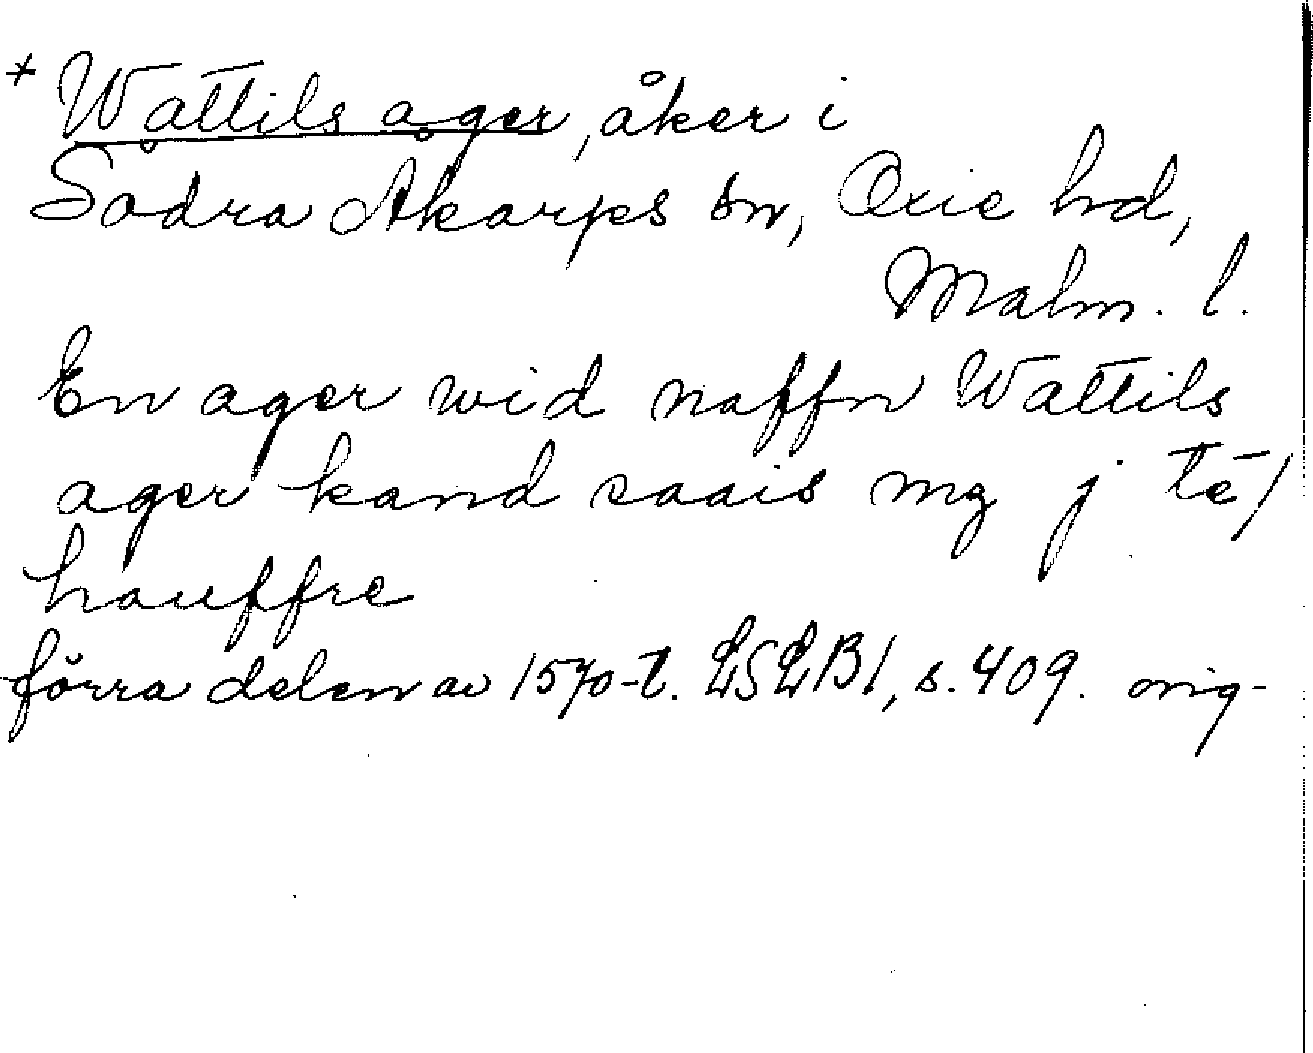 * Wattils ager, åker i
Södra Åkarps sn, Oxie hd,
Malm. l.
En ager wid naffn Wattils
ager kand saais mg j tē /
hauffre
förra delen av 1570-t. LSLB1, s. 409. orig-